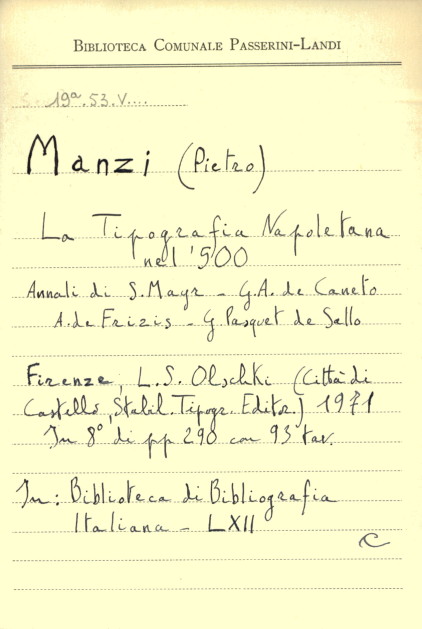 BIBLIOTECA COMUNALE PASSERINI-LANDI
S. 19ª.53.V....
Manzi (Pietro)
La Tipografia Napoletana
nel '500
Annali di S. Mayr - G.A. de Caneto
A. de Frizis - G. Pasquet de Sallo
Firenze, L.S. Olschki (Città di
Castello, Stabil. Tipogr. Editor.) 1971
In 8° di pp 290 con 93 tav.
In: Biblioteca di Bibliografia
Italiana - LXII
C